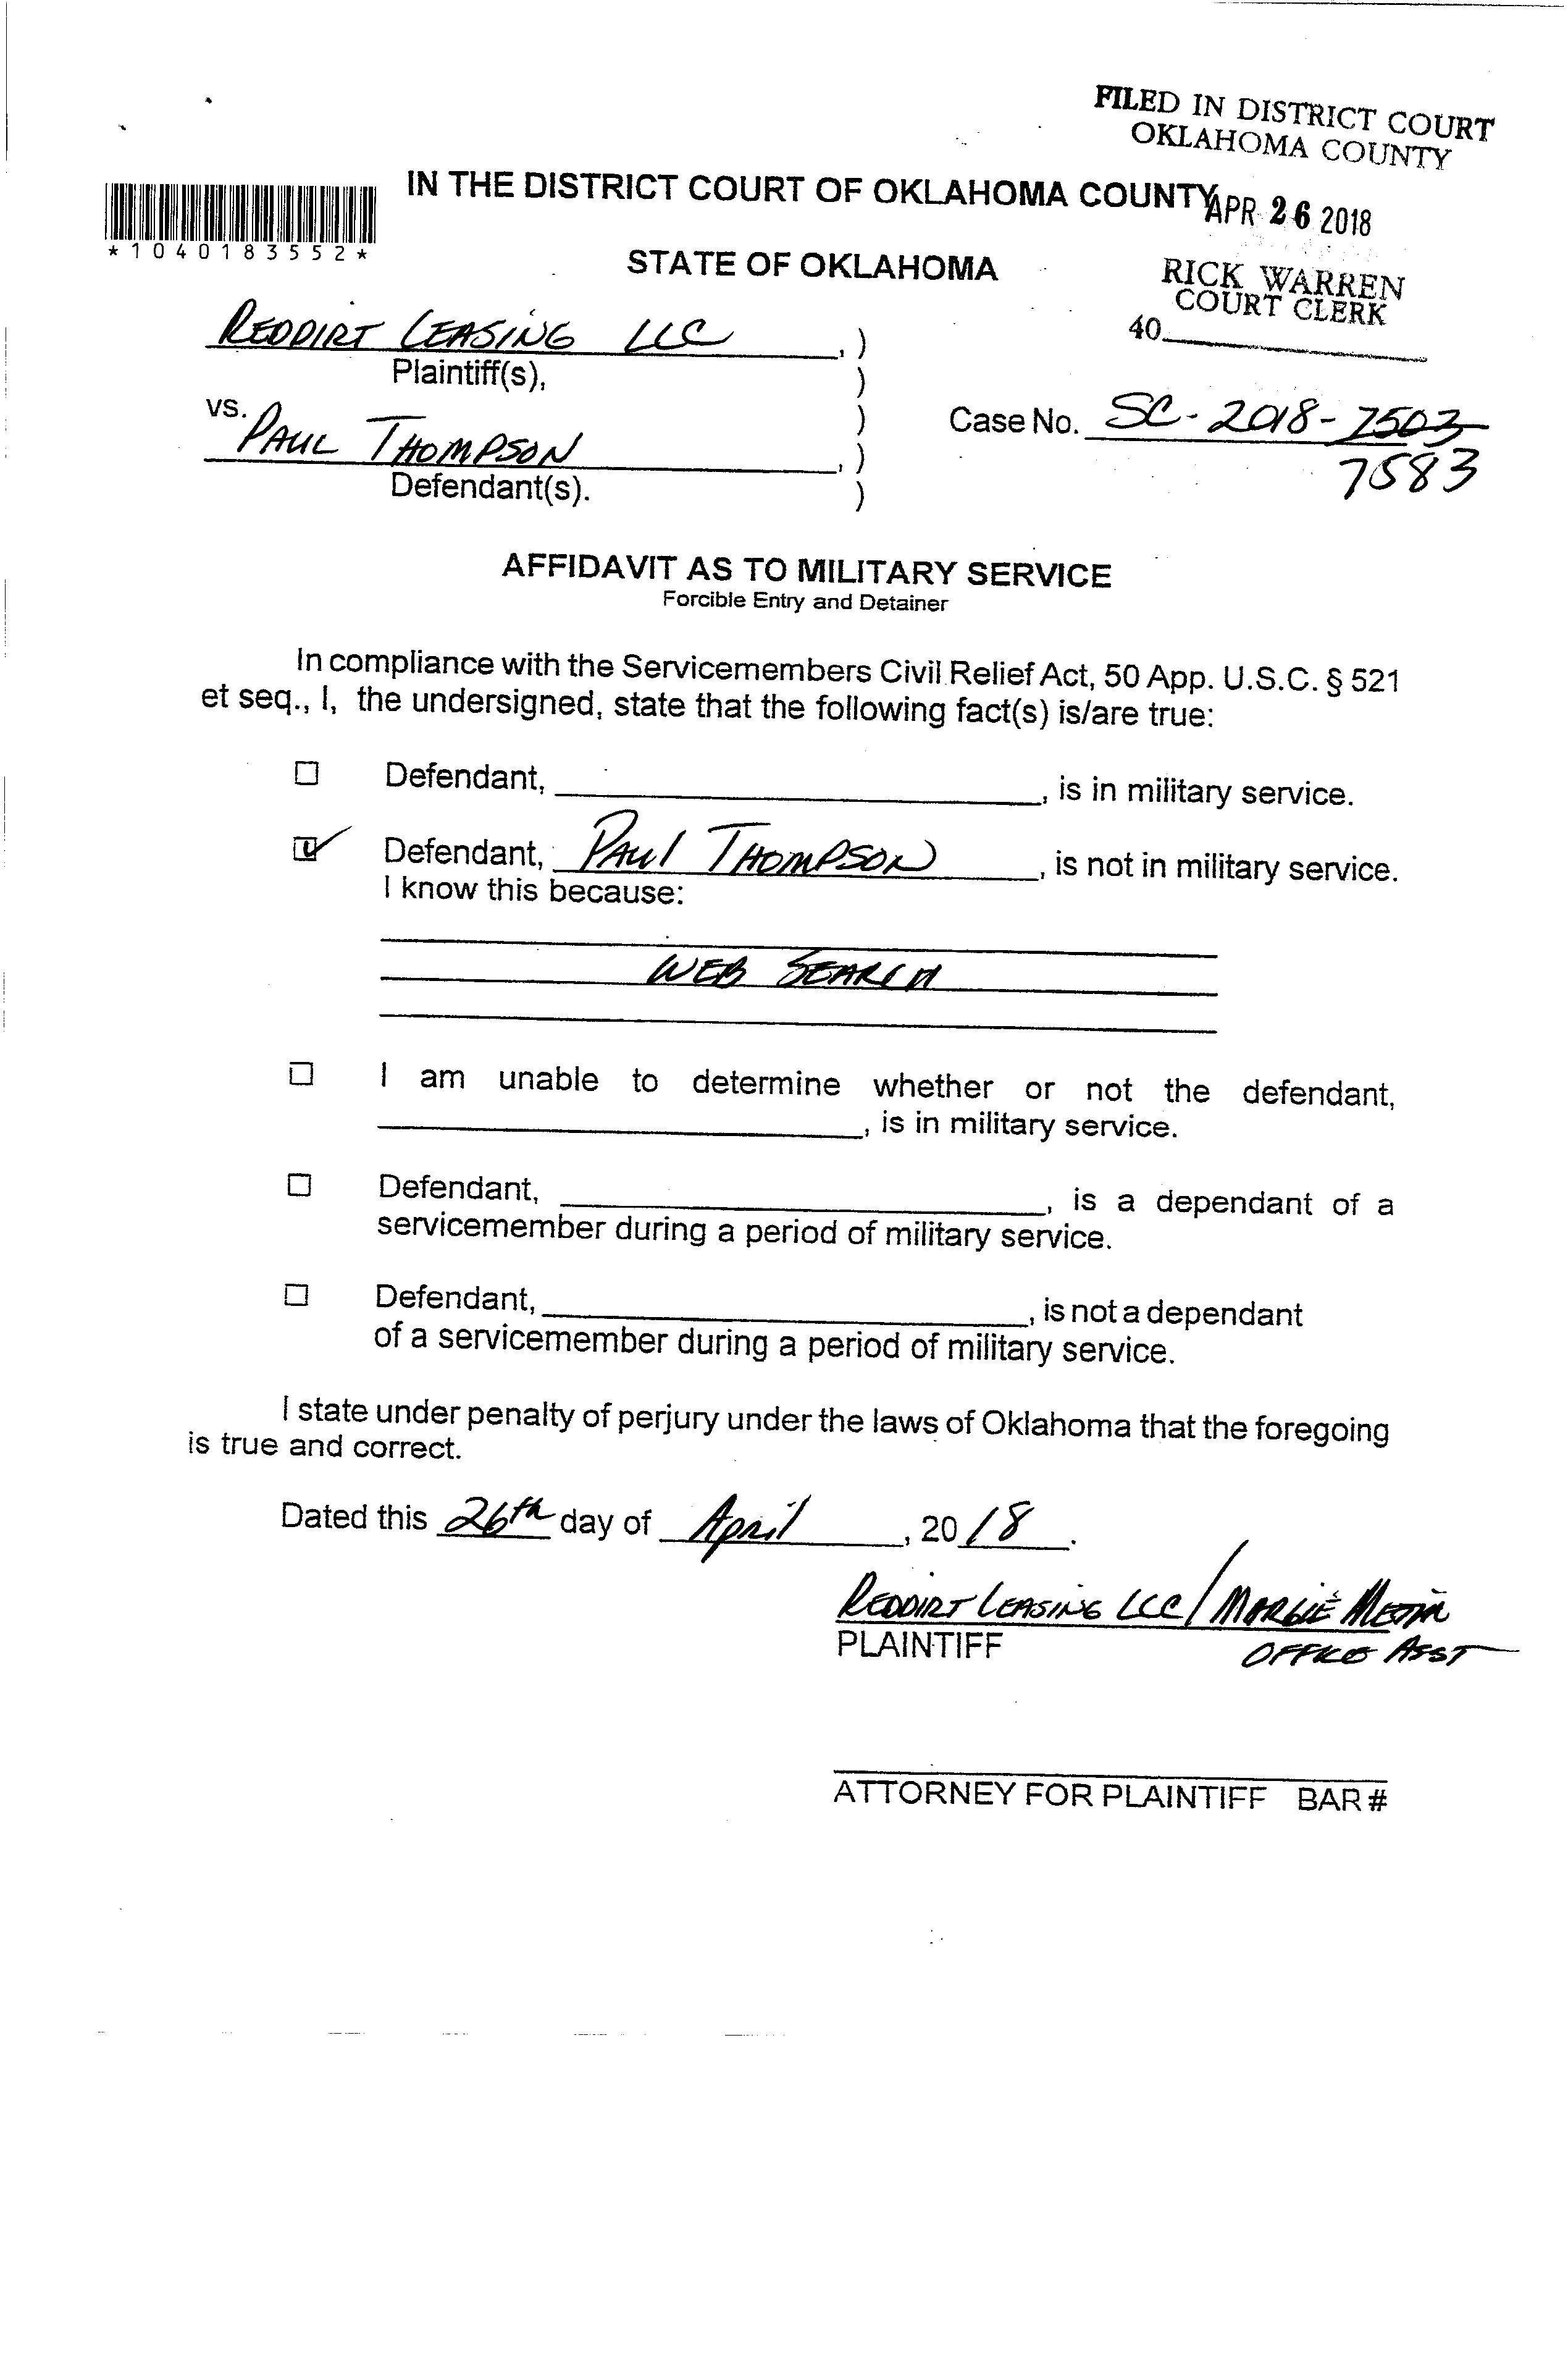 FILED IN DISTRICT COURT
OKLAHOMA COUNTY
IN THE DISTRICT COURT OF OKLAHOMA COUNTY
APR 26 2018
*1040183552*
STATE OF OKLAHOMA
RICK WARREN
COURT CLERK
40
REDDIRT LEASING LLC , )
Plaintiff(s), )
vs. )
Case No. SC-2018-7503
PAUL THOMPSON , )
7583
Defendant(s). )
AFFIDAVIT AS TO MILITARY SERVICE
Forcible Entry and Detainer
In compliance with the Servicemembers Civil Relief Act, 50 App. U.S.C. § 521
et seq., I, the undersigned, state that the following fact(s) is/are true:
☐ Defendant, , is in military service.
☑ Defendant, PAUL THOMPSON , is not in military service.
I know this because:
WEB SEARCH
☐ I am unable to determine whether or not the defendant,
, is in military service.
☐ Defendant, , is a dependant of a
servicemember during a period of military service.
☐ Defendant, , is not a dependant
of a servicemember during a period of military service.
I state under penalty of perjury under the laws of Oklahoma that the foregoing
is true and correct.
Dated this 26th day of April , 2018.
REDDIRT LEASING LLC / MARGIE
PLAINTIFF
OFFICE ASST
ATTORNEY FOR PLAINTIFF BAR #